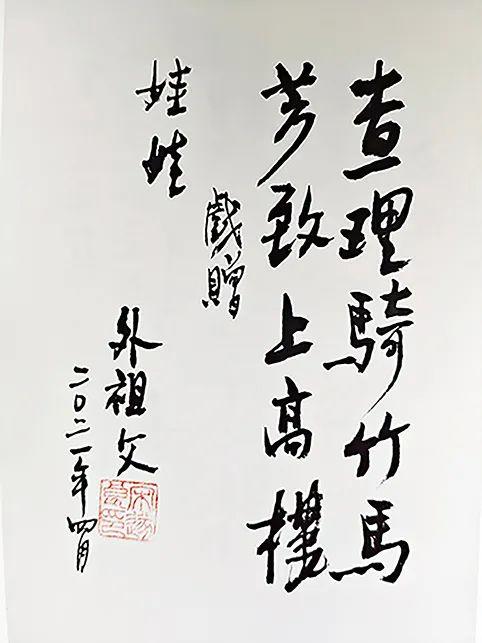 查理騎竹馬
芳致上高樓
戲贈
娃娃
外祖父
二〇二一年四月